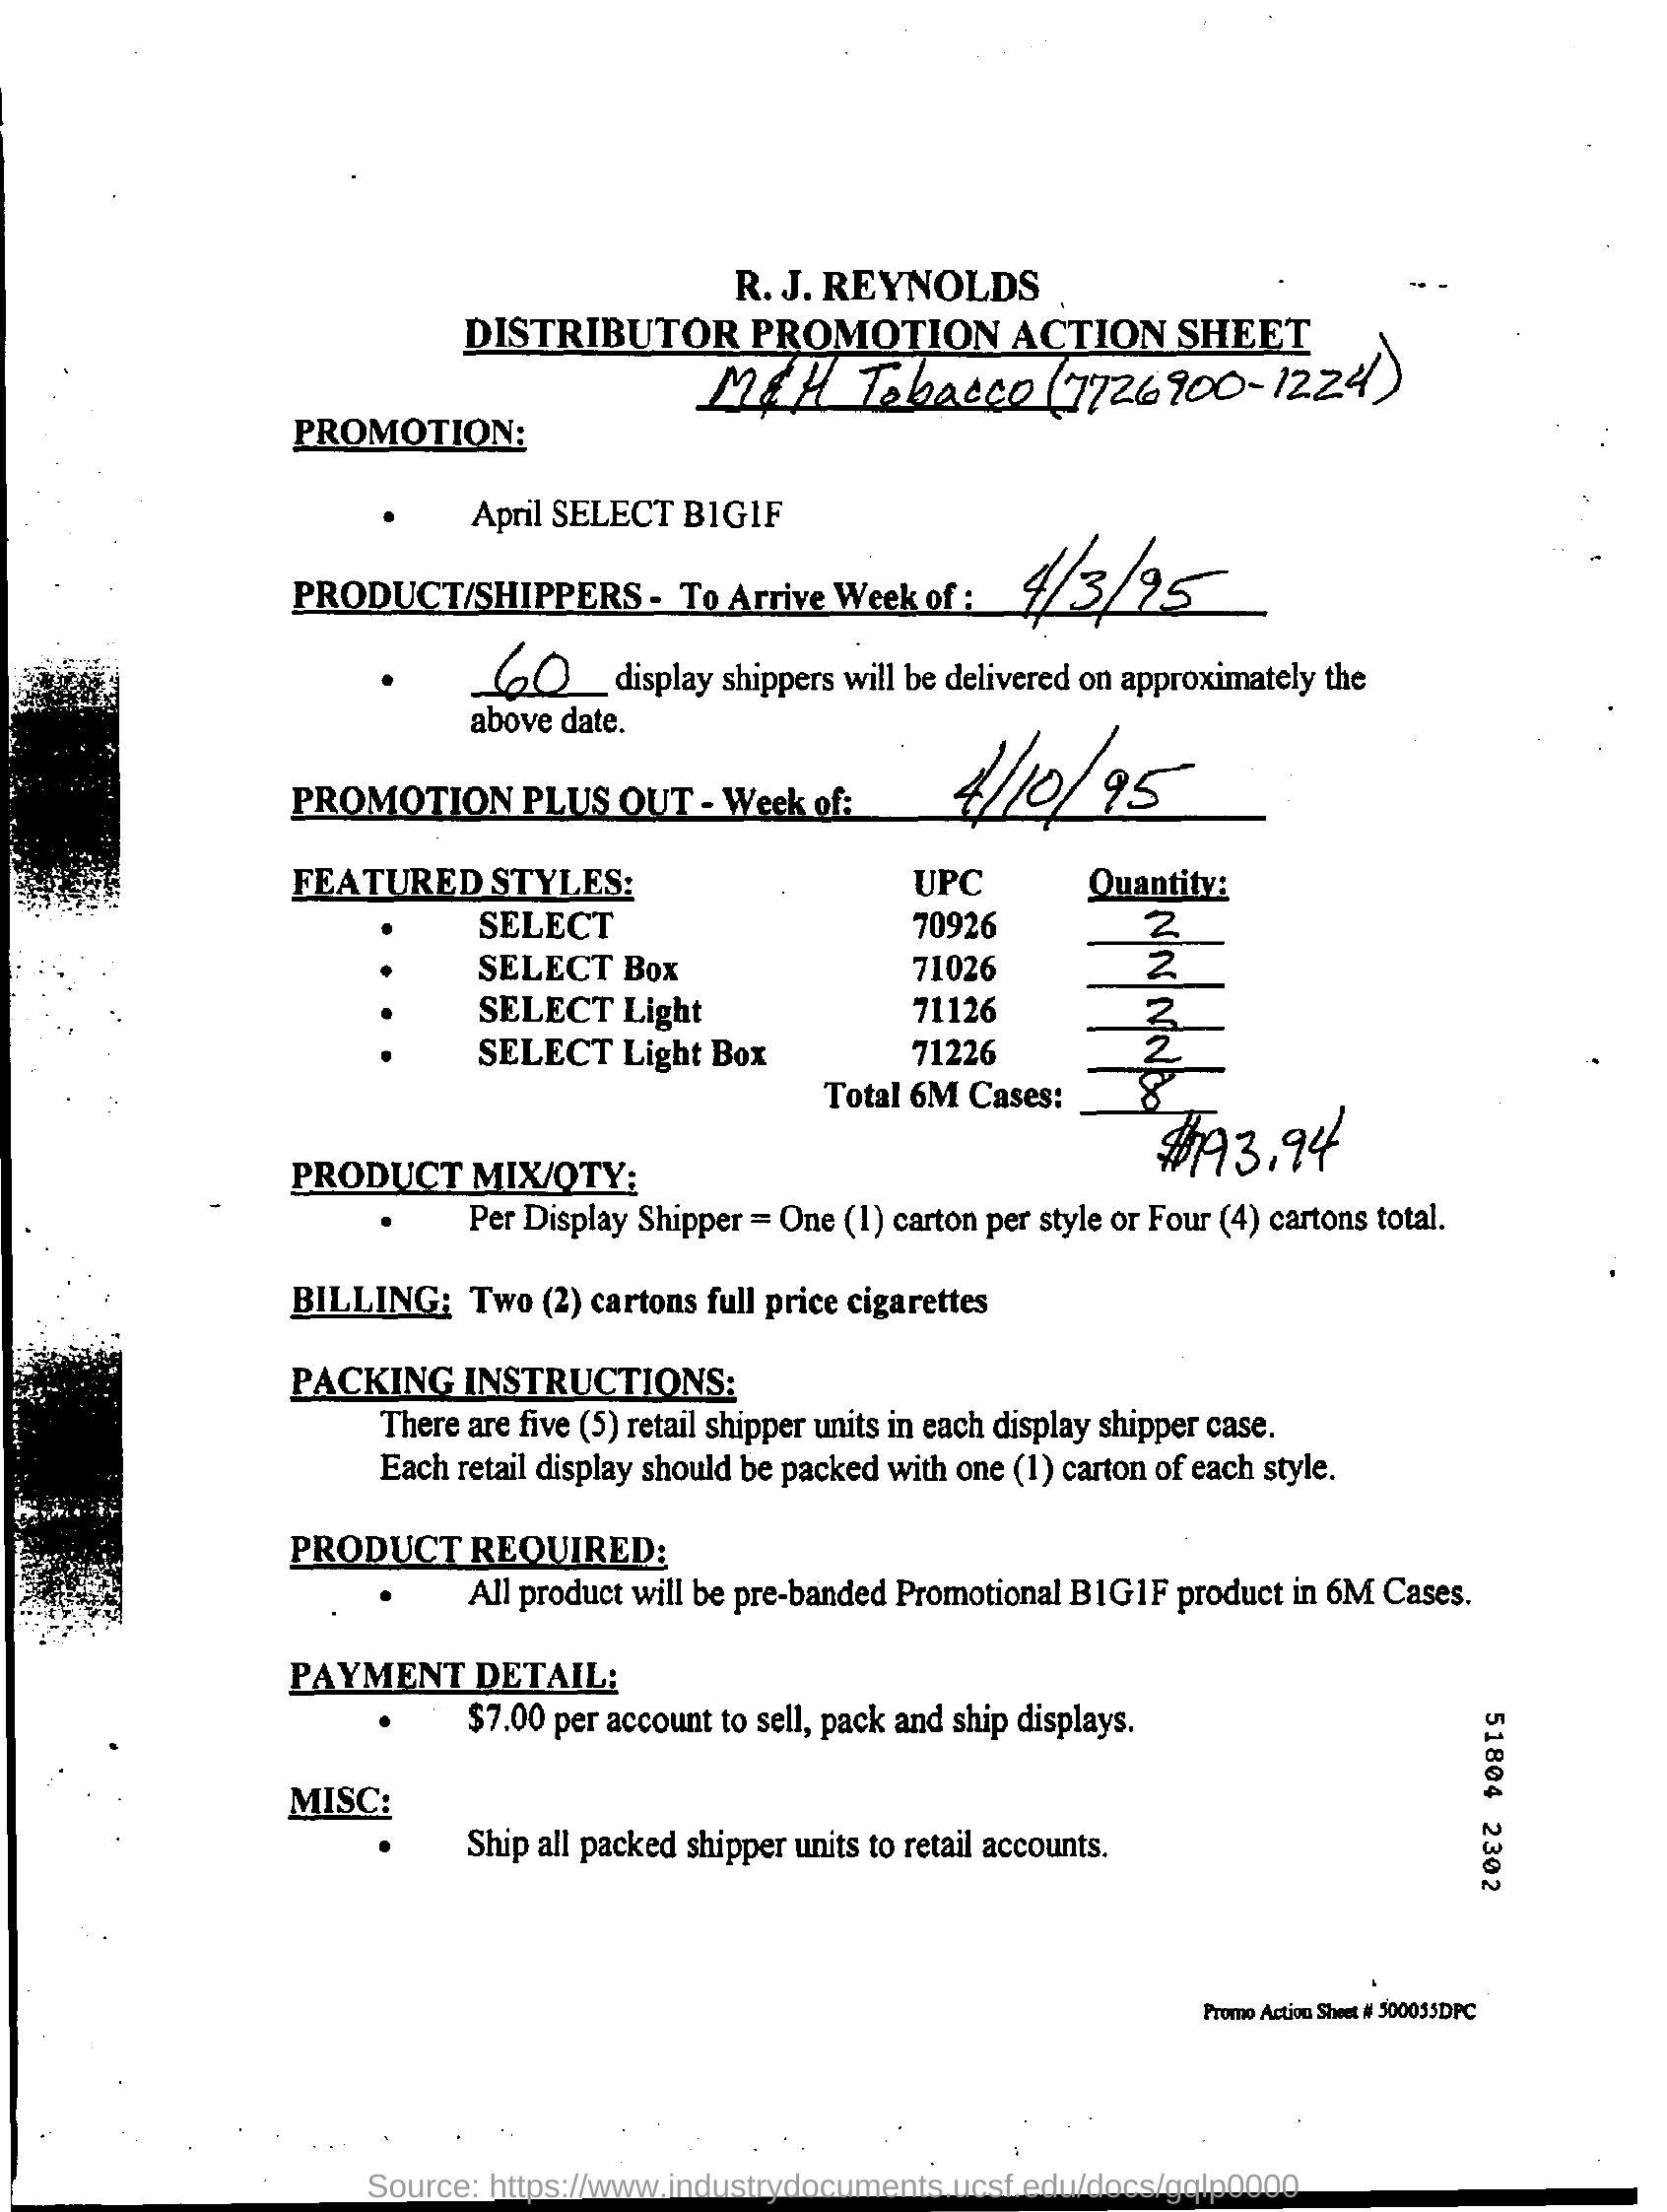 R. J. REYNOLDS
DISTRIBUTOR PROMOTION ACTION SHEET
M&H Tobacco (7726900-1224)
PROMOTION:
• April SELECT B1G1F
PRODUCT/SHIPPERS - To Arrive Week of : 4/3/95
• 60 display shippers will be delivered on approximately the
above date.
PROMOTION PLUS OUT - Week of: 4/10/95
FEATURED STYLES: UPC Quantity:
• SELECT 70926 2
• SELECT Box 71026 2
• SELECT Light 71126 2
• SELECT Light Box 71226 2
Total 6M Cases: 8
PRODUCT MIX/QTY:
• Per Display Shipper = One (1) carton per style or Four (4) cartons total.
BILLING: Two (2) cartons full price cigarettes
PACKING INSTRUCTIONS:
There are five (5) retail shipper units in each display shipper case.
Each retail display should be packed with one (1) carton of each style.
PRODUCT REQUIRED:
• All product will be pre-banded Promotional B1G1F product in 6M Cases.
PAYMENT DETAIL:
• $7.00 per account to sell, pack and ship displays.
MISC:
• Ship all packed shipper units to retail accounts.
51804 2302
Promo Action Sheet # 500055DPC
Source: https://www.industrydocuments.ucsf.edu/docs/gqlp0000